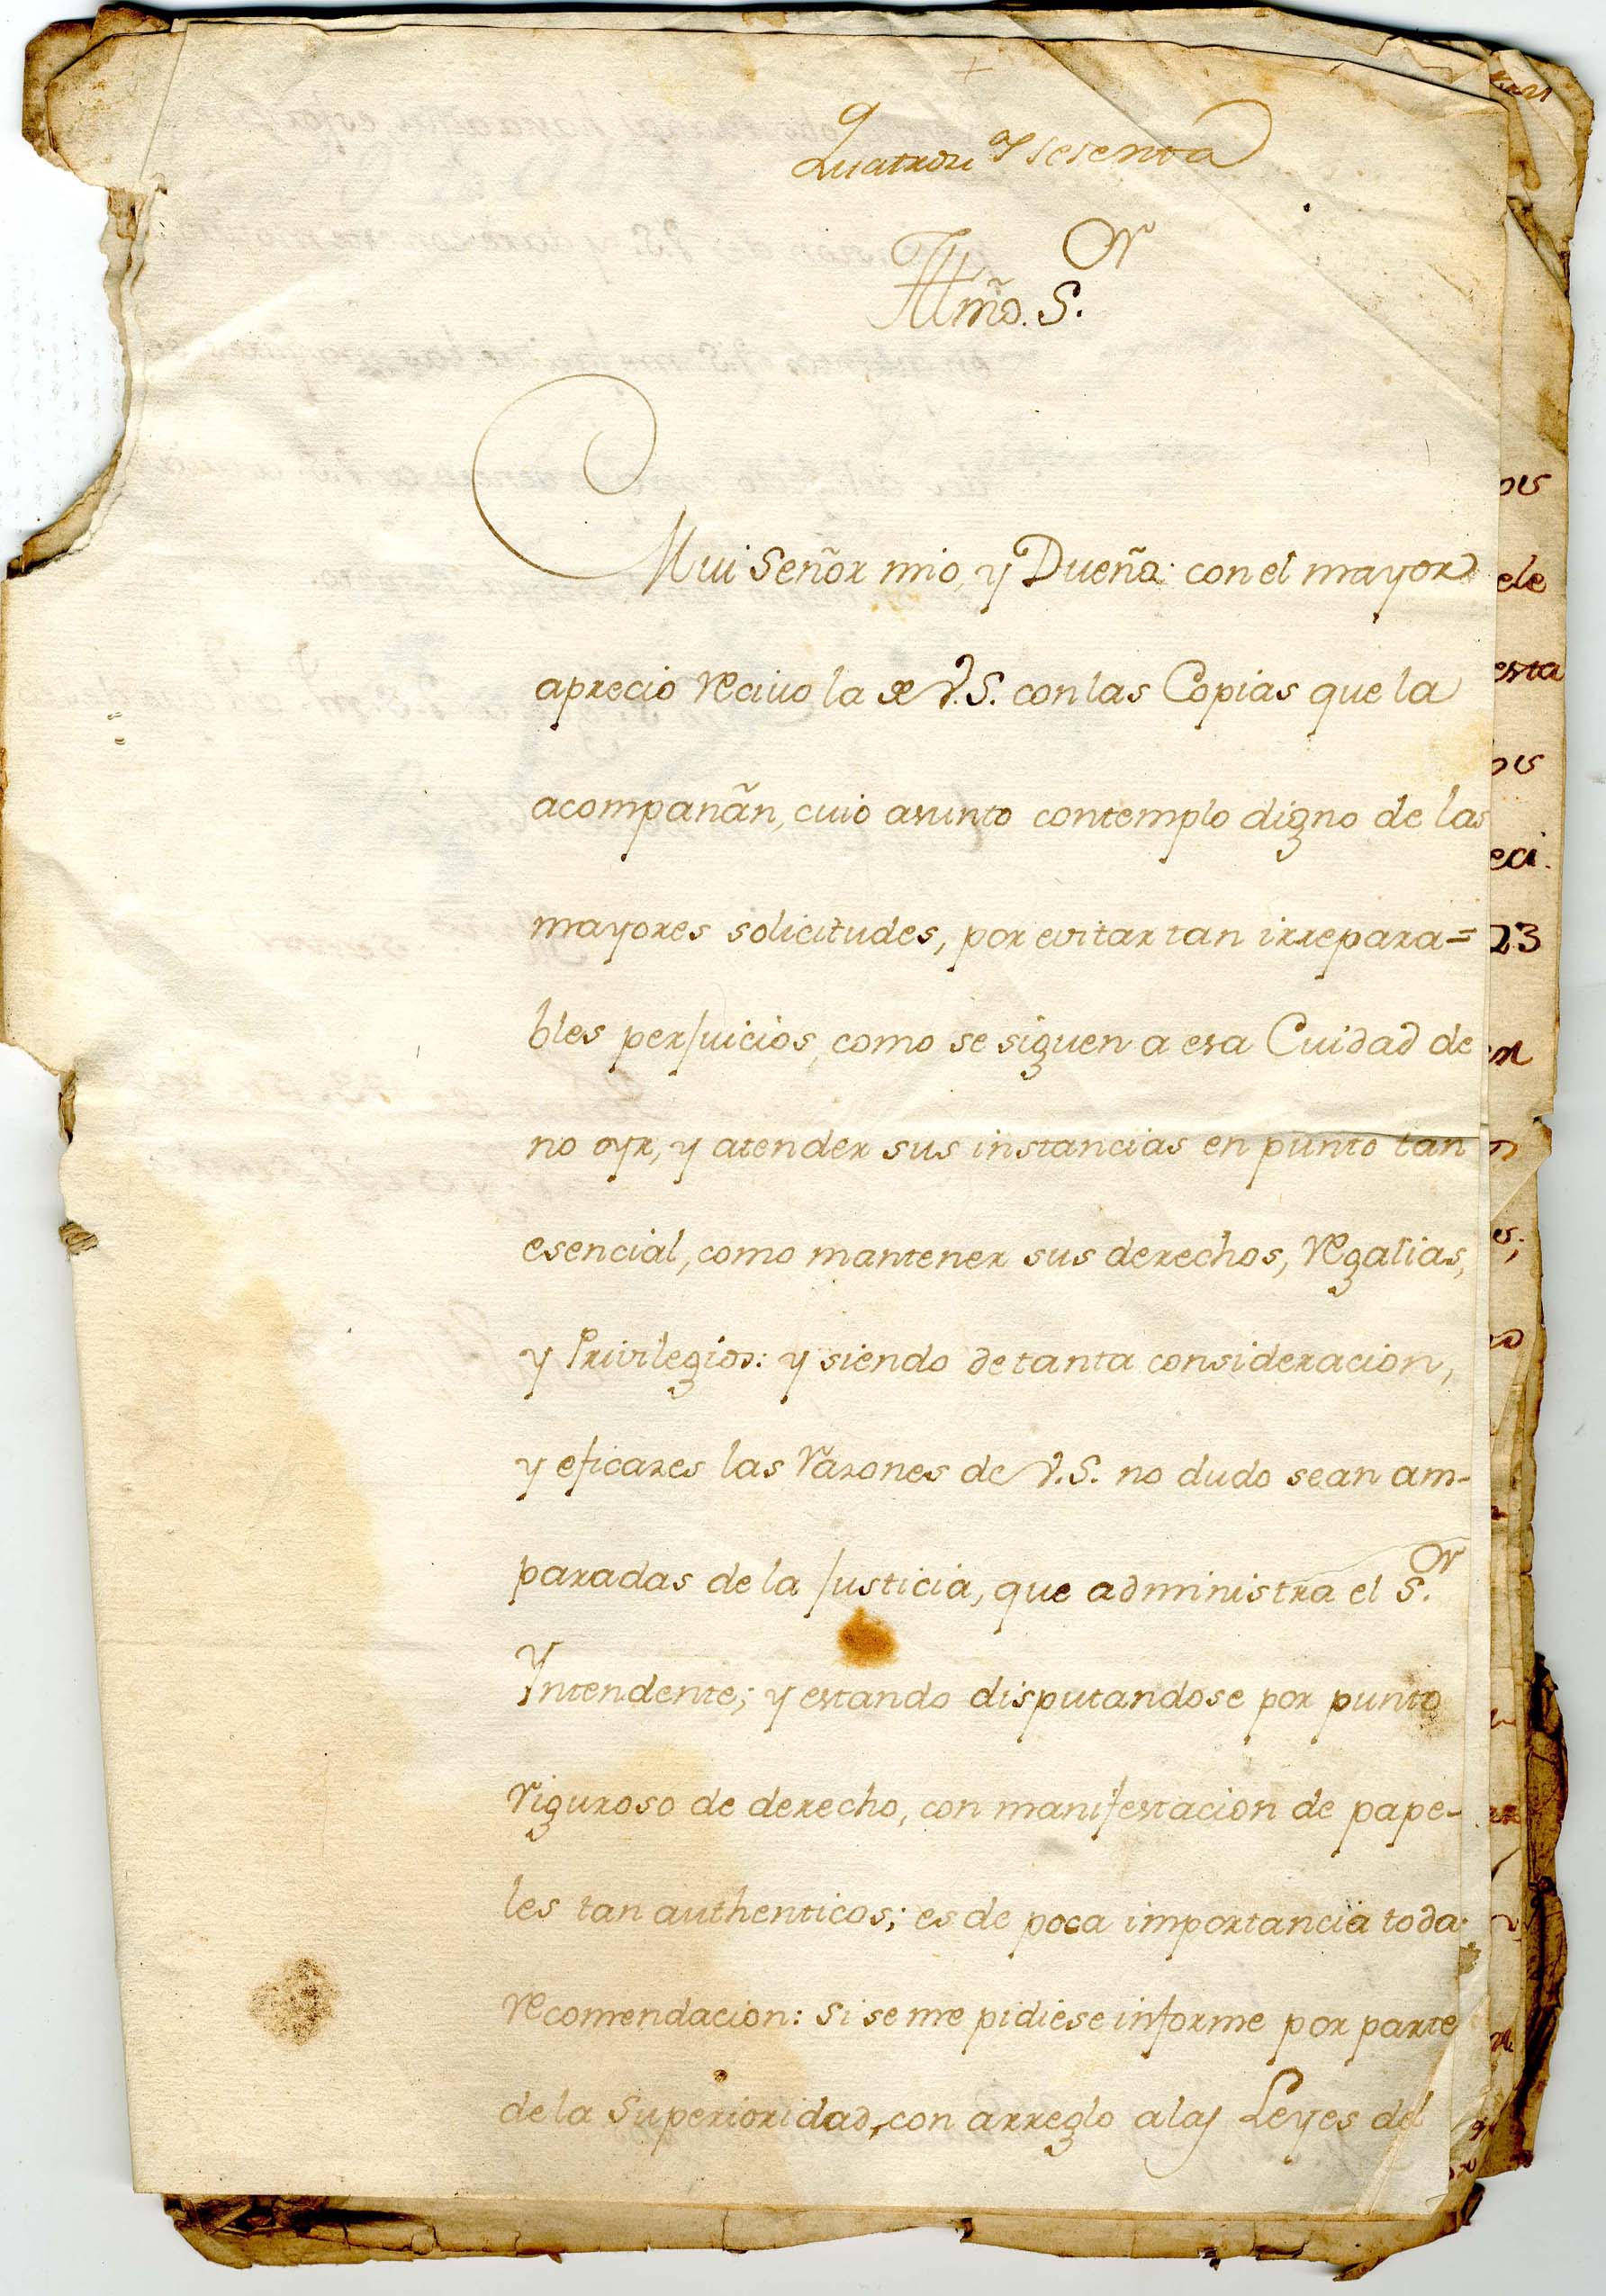 +
Quatroz.^s y sesenta
Illm̃o. S.^or
Mui Señor mio, y Dueño: con el mayor
aprecio recivo la de V.S. con las Copias que la
acompañãn, cuio asunto contemplo digno de las
mayores solicitudes, por evitar tan irrepara=
bles perjuicios, como se siguen a esa Cuidad de
no oyr, y atender sus instancias en punto tan
esencial, como mantener sus derechos, regalias,
y Privilegios: y siendo de tanta consideracion,
y eficazes las razones de V.S. no dudo sean am-
paradas de la Justicia, que administra el S.^or
Yntendente; y estando disputandose por punto
riguroso de derecho, con manifestacion de pape-
les tan authenticos; es de poca importancia toda
recomendacion: si se me pidiese informe por parte
de la Superioridad, con arreglo a las Leyes del
esta
23